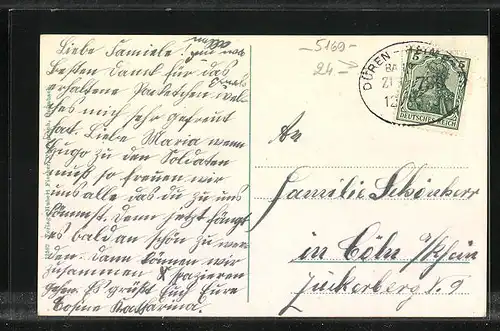 Liebe Familie!
Besten Dank für das
erhaltene Paketchen
mich sehr gefreut
hat. Liebe Maria wenn
Hugo zu den Soldaten
muß so freuen wir
uns alle das du zu uns
kommst. Denn jetzt fängt
es bald an schön zu wer
den. Dann können wir
zusammen spazieren
gehen. Es grüßt Euch Eure
Cosine Katharina.
5160
24
DÜREN
5 5
DEUTSCHES REICH
An
Familie Schönherr
in Cöln a/Rhein
Zuckerberg N. 9